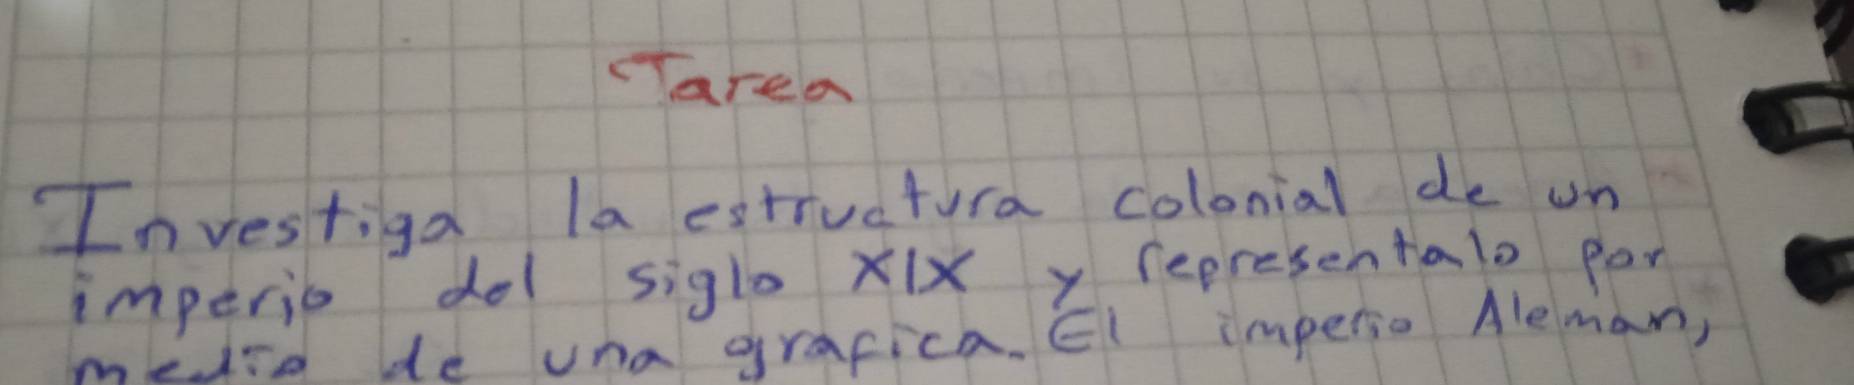 Tarea
Investiga la estructura colonial de un
imperio del siglo XIX y representalo por
medio de una grafica. El imperio Aleman,